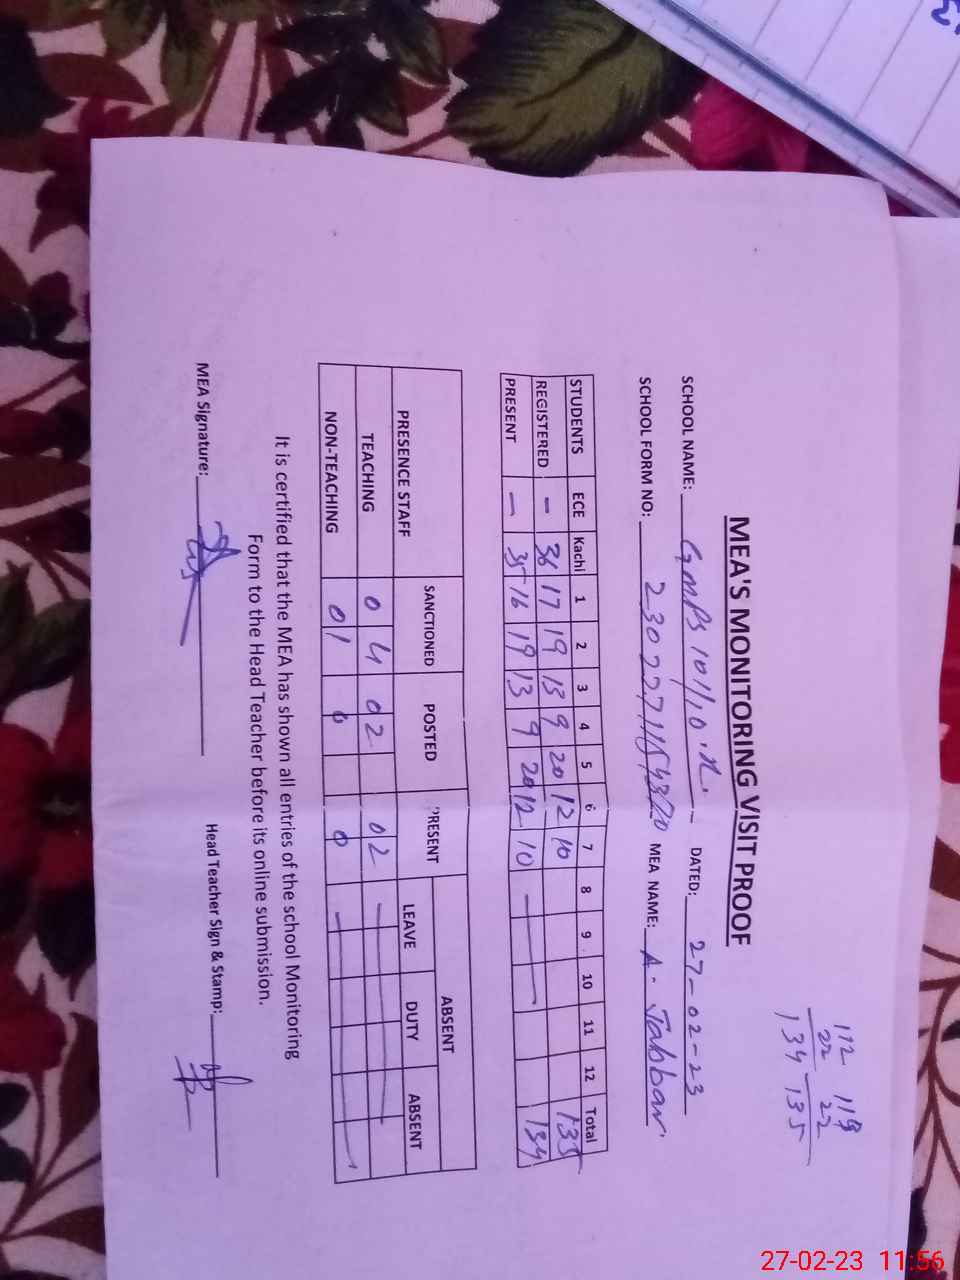 112 119
22 22
134 135
MEA'S MONITORING VISIT PROOF
SCHOOL NAME: GMPS 101/10.R DATED: 27-02-23
SCHOOL FORM NO: MEA NAME: A. Jabbar
STUDENTS ECE Kachi 1 2 3 4 5 6 7 8 9 10 11 12 Total
REGISTERED - 36 17 19 13 9 20 12 10 135
PRESENT - 35 16 19 13 9 20 12 10 — 134
PRESENCE STAFF SANCTIONED POSTED PRESENT ABSENT
LEAVE DUTY ABSENT
TEACHING 0 4 0 2 0 2 —
NON-TEACHING 0 1 0 0 —
It is certified that the MEA has shown all entries of the school Monitoring
Form to the Head Teacher before its online submission.
MEA Signature: Head Teacher Sign & Stamp:
27-02-23 11:56